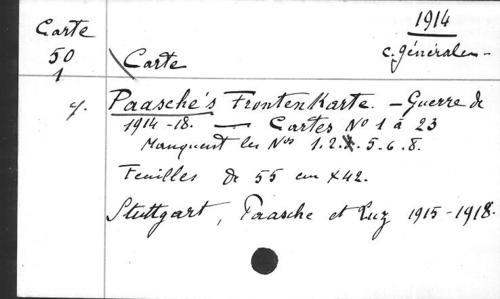 Carte
50
1
1914
c. générales
Carte
Paasche's Frontenkarte. — Guerre de
1914-18. — Cartes No 1 à 23
Manquent les Nos 1. 2. 5. 6. 8.
Feuilles de 55 cm × 42.
Stuttgart, Paasche et Luz 1915-1918.